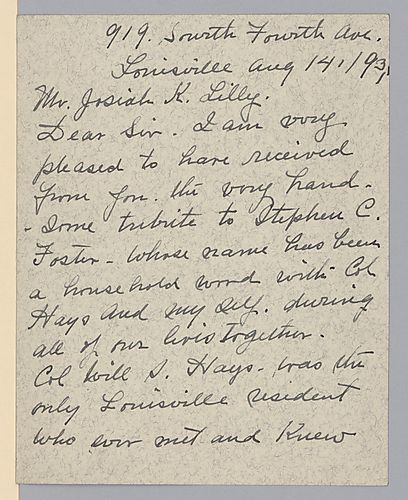 919. South Fourth Ave.
Louisville Aug 14,/93,
Mr. Josiah K. Lilly.
Dear Sir. I am very
pleased to have received
from you. the very hand-
-some tribute to Stephen C.
Foster- whose name has been
a household word with Col
Hays and my self. during
all of our lives together.
Col Will S. Hays- was the
only Louisville resident
who ever met and Knew